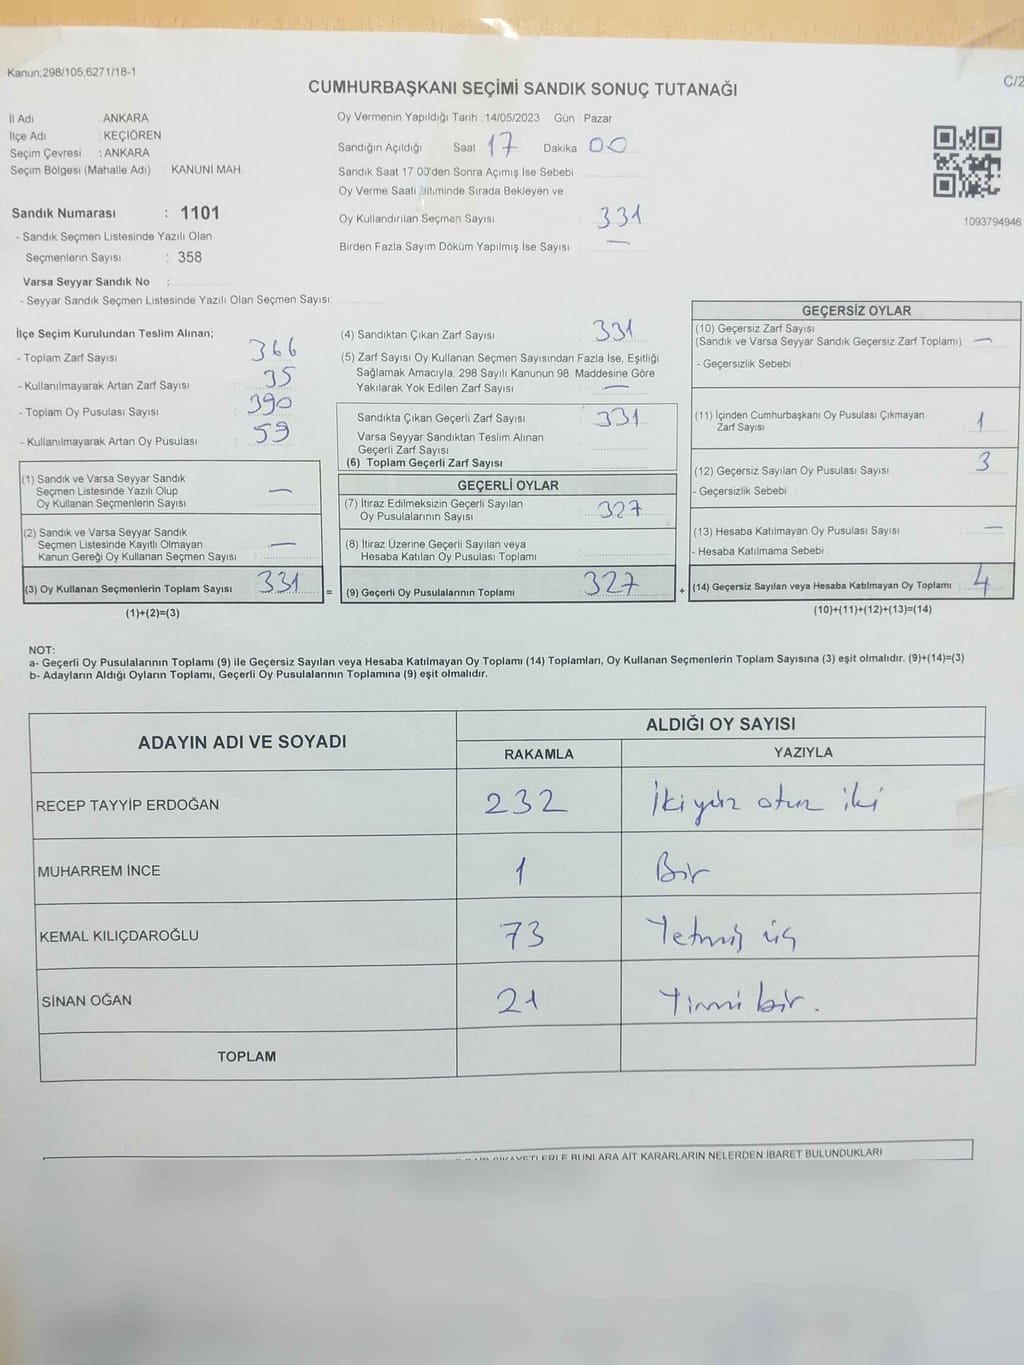 Kanun;298/105;6271/18-1
C/2
CUMHURBAŞKANI SEÇİMİ SANDIK SONUÇ TUTANAĞI
İl Adı : ANKARA
İlçe Adı : KEÇİÖREN
Seçim Çevresi : ANKARA
Seçim Bölgesi (Mahalle Adı) KANUNİ MAH.
Sandık Numarası : 1101
- Sandık Seçmen Listesinde Yazılı Olan
Seçmenlerin Sayısı : 358
Varsa Seyyar Sandık No :
- Seyyar Sandık Seçmen Listesinde Yazılı Olan Seçmen Sayısı:
Oy Vermenin Yapıldığı Tarih : 14/05/2023 Gün : Pazar
Sandığın Açıldığı Saat 17 Dakika 00
Sandık Saat 17:00'den Sonra Açımış İse Sebebi
Oy Verme Saati Bitiminde Sırada Bekleyen ve
Oy Kullandırılan Seçmen Sayısı : 331
Birden Fazla Sayım Döküm Yapılmış İse Sayısı : —
1093794946
İlçe Seçim Kurulundan Teslim Alınan;
- Toplam Zarf Sayısı : 366
- Kullanılmayarak Artan Zarf Sayısı : 35
- Toplam Oy Pusulası Sayısı : 390
- Kullanılmayarak Artan Oy Pusulası : 59
(1) Sandık ve Varsa Seyyar Sandık
Seçmen Listesinde Yazılı Olup
Oy Kullanan Seçmenlerin Sayısı : —
(2) Sandık ve Varsa Seyyar Sandık
Seçmen Listesinde Kayıtlı Olmayan
Kanun Gereği Oy Kullanan Seçmen Sayısı : —
(3) Oy Kullanan Seçmenlerin Toplam Sayısı : 331
(1)+(2)=(3)
(4) Sandıktan Çıkan Zarf Sayısı : 331
(5) Zarf Sayısı Oy Kullanan Seçmen Sayısından Fazla İse, Eşitliği
Sağlamak Amacıyla, 298 Sayılı Kanunun 98. Maddesine Göre
Yakılarak Yok Edilen Zarf Sayısı : —
Sandıkta Çıkan Geçerli Zarf Sayısı : 331
Varsa Seyyar Sandıktan Teslim Alınan
Geçerli Zarf Sayısı :
(6) Toplam Geçerli Zarf Sayısı :
GEÇERLİ OYLAR
(7) İtiraz Edilmeksizin Geçerli Sayılan
Oy Pusulalarının Sayısı : 327
(8) İtiraz Üzerine Geçerli Sayılan veya
Hesaba Katılan Oy Pusulası Toplamı :
= (9) Geçerli Oy Pusulalarının Toplamı : 327
GEÇERSİZ OYLAR
(10) Geçersiz Zarf Sayısı
(Sandık ve Varsa Seyyar Sandık Geçersiz Zarf Toplamı) : —
- Geçersizlik Sebebi :
(11) İçinden Cumhurbaşkanı Oy Pusulası Çıkmayan
Zarf Sayısı : 1
(12) Geçersiz Sayılan Oy Pusulası Sayısı : 3
- Geçersizlik Sebebi :
(13) Hesaba Katılmayan Oy Pusulası Sayısı : —
- Hesaba Katılmama Sebebi :
+ (14) Geçersiz Sayılan veya Hesaba Katılmayan Oy Toplamı : 4
(10)+(11)+(12)+(13)=(14)
NOT:
a- Geçerli Oy Pusulalarının Toplamı (9) ile Geçersiz Sayılan veya Hesaba Katılmayan Oy Toplamı (14) Toplamları, Oy Kullanan Seçmenlerin Toplam Sayısına (3) eşit olmalıdır. (9)+(14)=(3)
b- Adayların Aldığı Oyların Toplamı, Geçerli Oy Pusulalarının Toplamına (9) eşit olmalıdır.
ADAYIN ADI VE SOYADI
ALDIĞI OY SAYISI
RAKAMLA YAZIYLA
RECEP TAYYİP ERDOĞAN 232 İkiyüz otuz iki
MUHARREM İNCE 1 Bir
KEMAL KILIÇDAROĞLU 73 Yetmiş üç
SİNAN OĞAN 21 Yirmi bir.
TOPLAM
BUNLARA AİT KARARLARIN NELERDEN İBARET BULUNDUKLARI